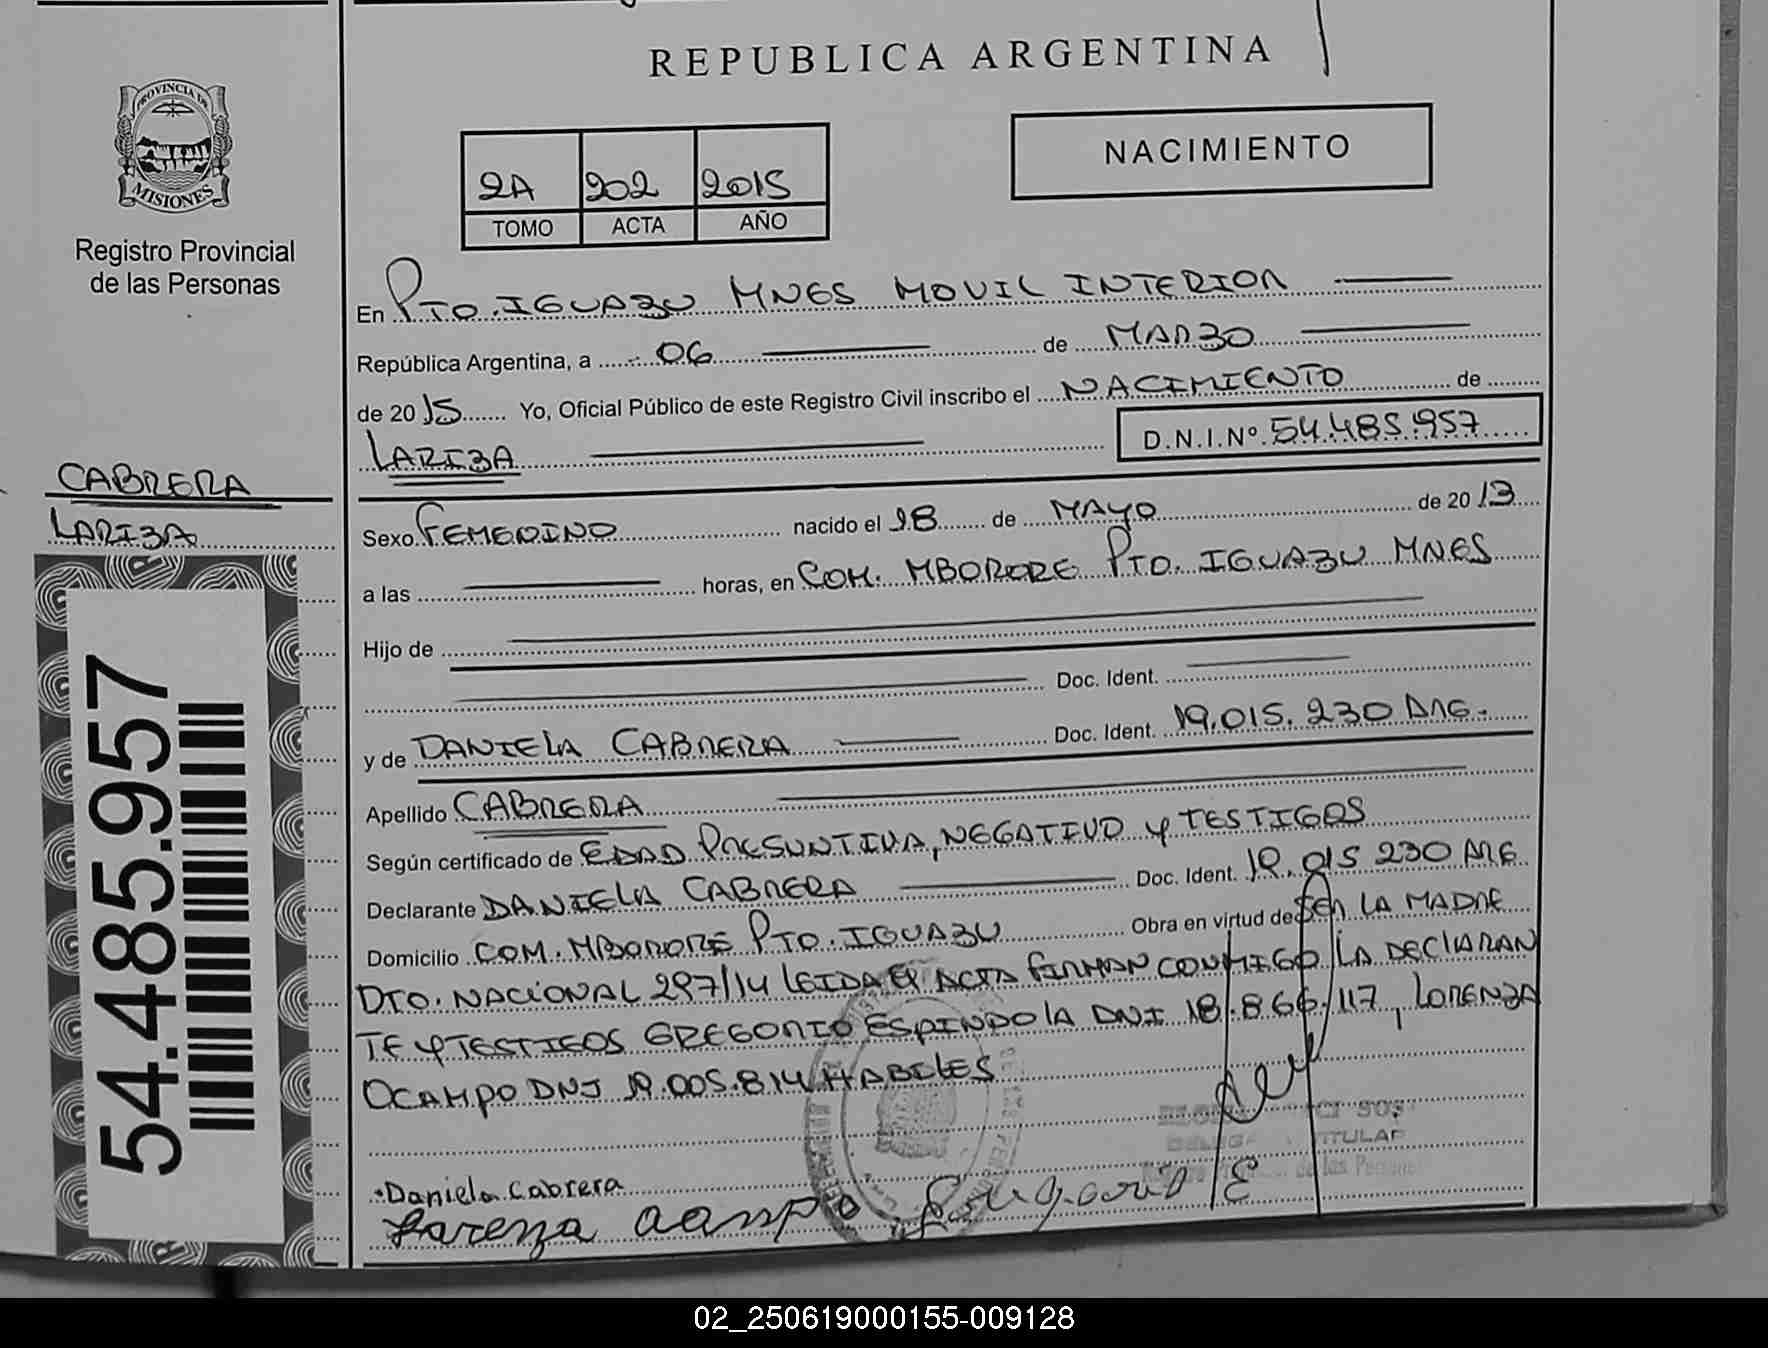 REPUBLICA ARGENTINA
NACIMIENTO
PROVINCIA DE
MISIONES
Registro Provincial
de las Personas
2A 202 2015
TOMO ACTA AÑO
En PTO. IGUAZU MNES MOVIL INTERIOR
República Argentina, a 06 de MARZO
de 2015 Yo, Oficial Público de este Registro Civil inscribo el NACIMIENTO de
LARIZA D.N.I.Nº 54.485.957
CABRERA
LARIZA
Sexo FEMENINO nacido el 18 de MAYO de 2013
a las horas, en COM. MBORORE PTO. IGUAZU MNES
Hijo de
Doc. Ident.
y de DANIELA CABRERA Doc. Ident. 19.015.230 ARG.
Apellido CABRERA
Según certificado de EDAD PRESUNTIVA, NEGATIVO y TESTIGOS
Declarante DANIELA CABRERA Doc. Ident. 19.015 230 ARG
Domicilio COM. MBORORE PTO. IGUAZU Obra en virtud de SER LA MADRE
DTO. NACIONAL 297/14 LEIDA EL ACTA FIRMAN CONMIGO LA DECLARAN
TE y TESTIGOS GREGORIO ESPINDOLA DNI 18.866.117, LORENZA
OCAMPO DNI 19.005.814 HABILES
54.485.957
TITULAR
de las
Daniela Cabrera
Lorenza ocampo
02_250619000155-009128